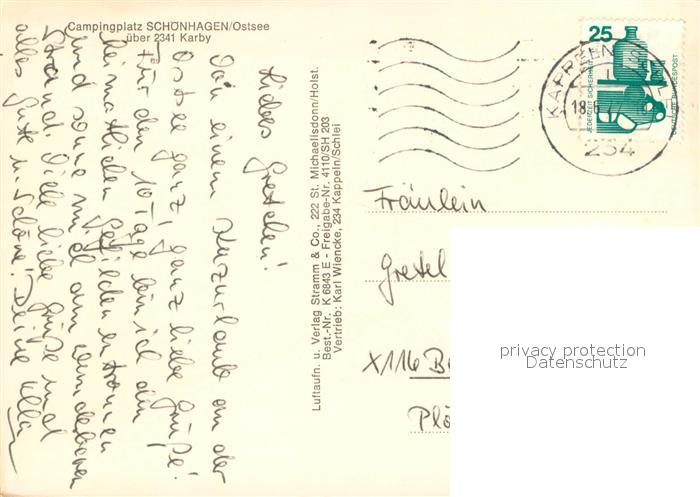 Campingplatz SCHÖNHAGEN/Ostsee
über 2341 Karby
Liebes Gretchen!
Von einem Kurzurlaub an der
Ostsee ganz, ganz liebe Grüße!
Für den 10 Tage bin ich den
heimatlichen Gefilden entronnen
und sonne mich am wunderbaren
Strand. Viele liebe Grüße und
alles Gute u. Schöne! Deine Ulla
Luftaufn. u. Verlag Stramm & Co., 222 St. Michaelisdonn/Holst.
Best.-Nr. K 6843 E - Freigabe-Nr. 4110/SH 203
Vertrieb: Karl Wiencke, 234 Kappeln/Schlei
25
JEDERZEIT SICHERHEIT
DEUTSCHE BUNDESPOST
234
Fräulein
Gretel
X116 Be
Plö
privacy protection
Datenschutz